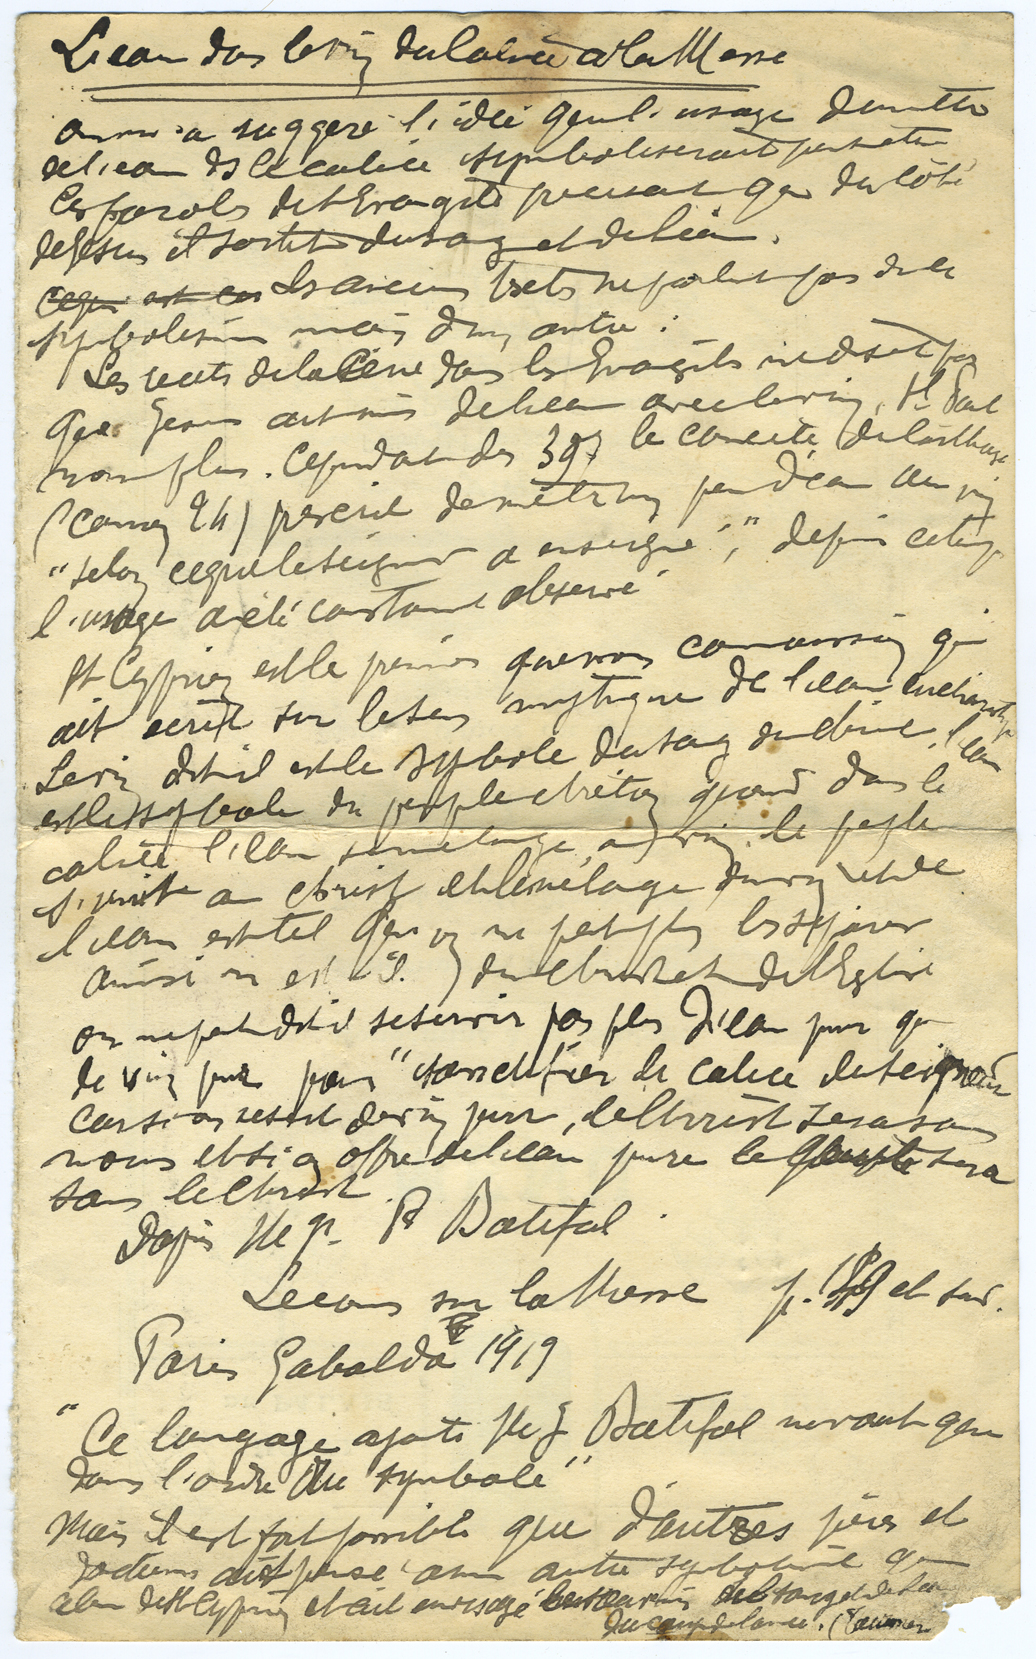 L'eau dans le vin du Calice à la Messe
on m'a suggéré l'idée que l'usage de mettre
de l'eau ds le calice symboliserait peut être
les paroles de l'Evangile precisant que du côté
de Jesus il sortit du sang et de l'eau.
ce qui est les anciens textes ne parlent pas de ce
symbolisme mais d'un autre :
Les recits de la Cène dans les Evangiles ne disent pas
que Jesus ait mis de l'eau avec le vin, St Paul
non plus. Cependant des 397 le concile de Carthage
(canon 24) prescrit de mettre un peu d'eau au vin
"selon ce que le Seigneur a enseigné", depuis ce temps
l'usage a été constament observé
St Cyprien est le premier que nous connaissions qui
ait ecrit sur le sens mystique de l'eau eucharistique
Le vin dit-il est le symbole du sang du divin, l'eau
est le symbole du peuple chrétien quand dans le
calice l'eau se melange au vin, le peuple
s'unit au Christ et le mélange du vin et de
l'eau est tel que on ne peut plus les séparer
ainsi n est du Christ et de l'Eglise
on ne peut dit-il se servir pas plus d'eau pure que
de vin pur pour "sanctifier le calice du Seigneur
car si on se sert de vin pur, le Christ sera sans
nous et si on offre de l'eau pure le peuple sera
sans le Christ.
Dapres Mgr P Batifol.
Lecons sur la Messe p. et suiv.
Paris Gabalda 1919
"Ce langage ajoute Mgr Batifol ne vaut que
dans l'ordre du symbole"
Mais il est fort possible que d'autres pères et
docteurs aient pensé a un autre symbolisme que
celui de St Cyprien et ait envisagé le sang et de l'eau
du coup de lance.